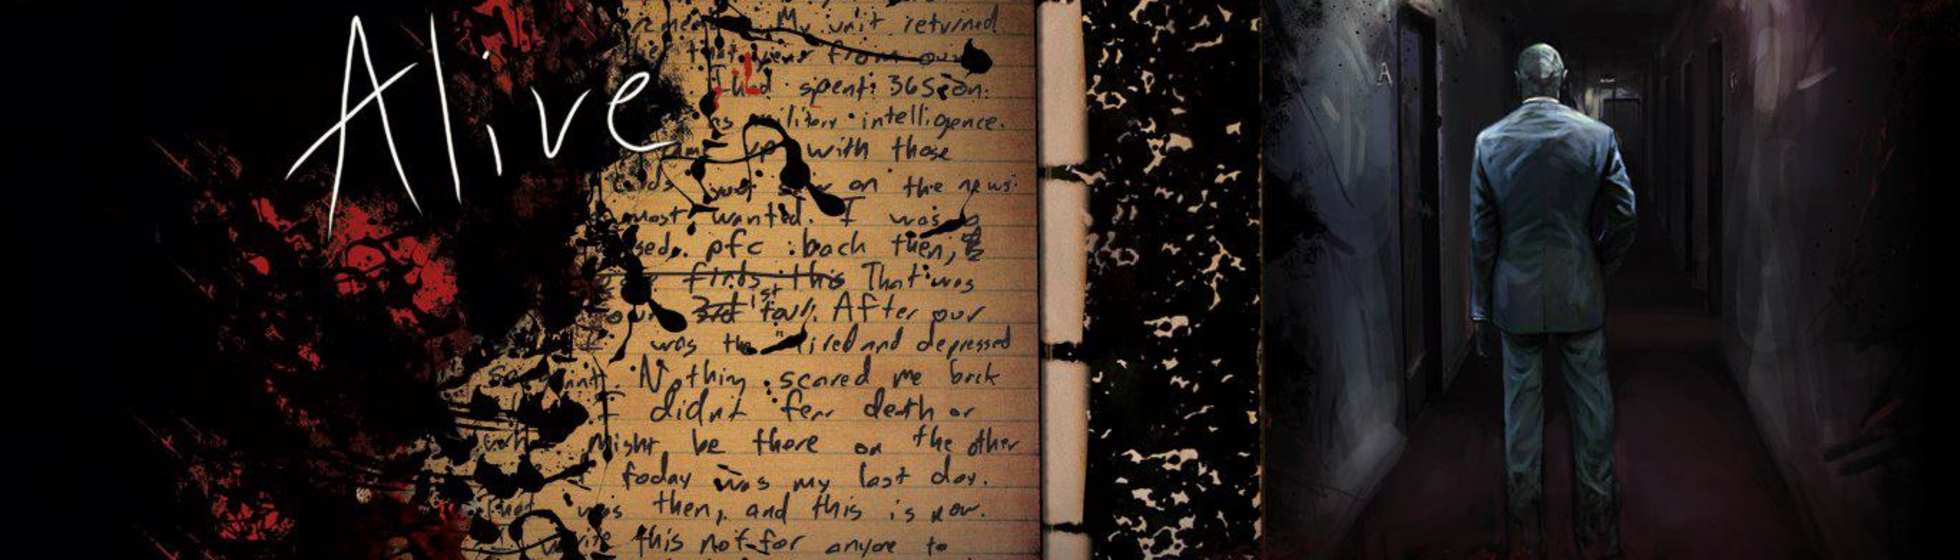 Alive
My unit returned
that year from our
I had spent 365 on.
military intelligence.
up with those
on the news.
most wanted. I was a
pfc back then,
first this That was
our 3rd 1st tour. After our
I was the tired and depressed
Nothing scared me back
I didnt fear death or
what might be there on the other
today was my last day.
that was then, and this is now.
write this not for anyone to
A